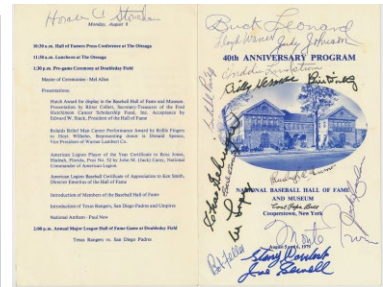 Horace C. Stoneham
Monday, August 6
10:30 a.m. Hall of Famers Press Conference at The Otesaga
11:30 a.m. Luncheon at The Otesaga
1:30 p.m. Pre-game Ceremony at Doubleday Field
Master of Ceremony - Mel Allen
Presentations:
Hutch Award for display in the Baseball Hall of Fame and Museum.
Presentation by Ritter Collett, Secretary-Treasurer of the Fred
Hutchinson Cancer Scholarship Fund, Inc. Acceptance by
Edward W. Stack, President of the Hall of Fame
Rolaids Relief Man Career Performance Award by Rollie Fingers
to Hoyt Wilhelm. Representing donor is Donald Spence,
Vice President of Warner Lambert Co.
American Legion Player of the Year Certificate to
Hialeah, Florida, Post 32 by John M. (Jack) Carey, National
Commander of American Legion
American Legion Baseball Certificate of Appreciation to Ken Smith,
Director Emeritus of the Hall of Fame
Introduction of Members of the Baseball Hall of Fame
Introduction of Texas Rangers, San Diego Padres and Umpires
National Anthem - Paul New
2:00 p.m. Annual Major League Hall of Fame Game at Doubleday Field
Texas Rangers vs. San Diego Padres
Buck Leonard
Lloyd Waner
Judy Johnson
40th ANNIVERSARY PROGRAM
Billy Herman
Bill Dickey
NATIONAL BASEBALL HALL OF FAME
AND MUSEUM
Cool Papa Bell
Cooperstown, New York
Monte
Irvin
August 5 & 6, 1979
Bob Feller
Stan Coveleski
Joe Sewell